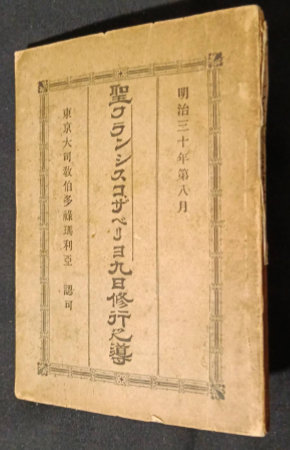 明治三十年第八月
聖フランシスコザベリヨ九日修行之導
東京大司教伯多祿瑪利亞 認可